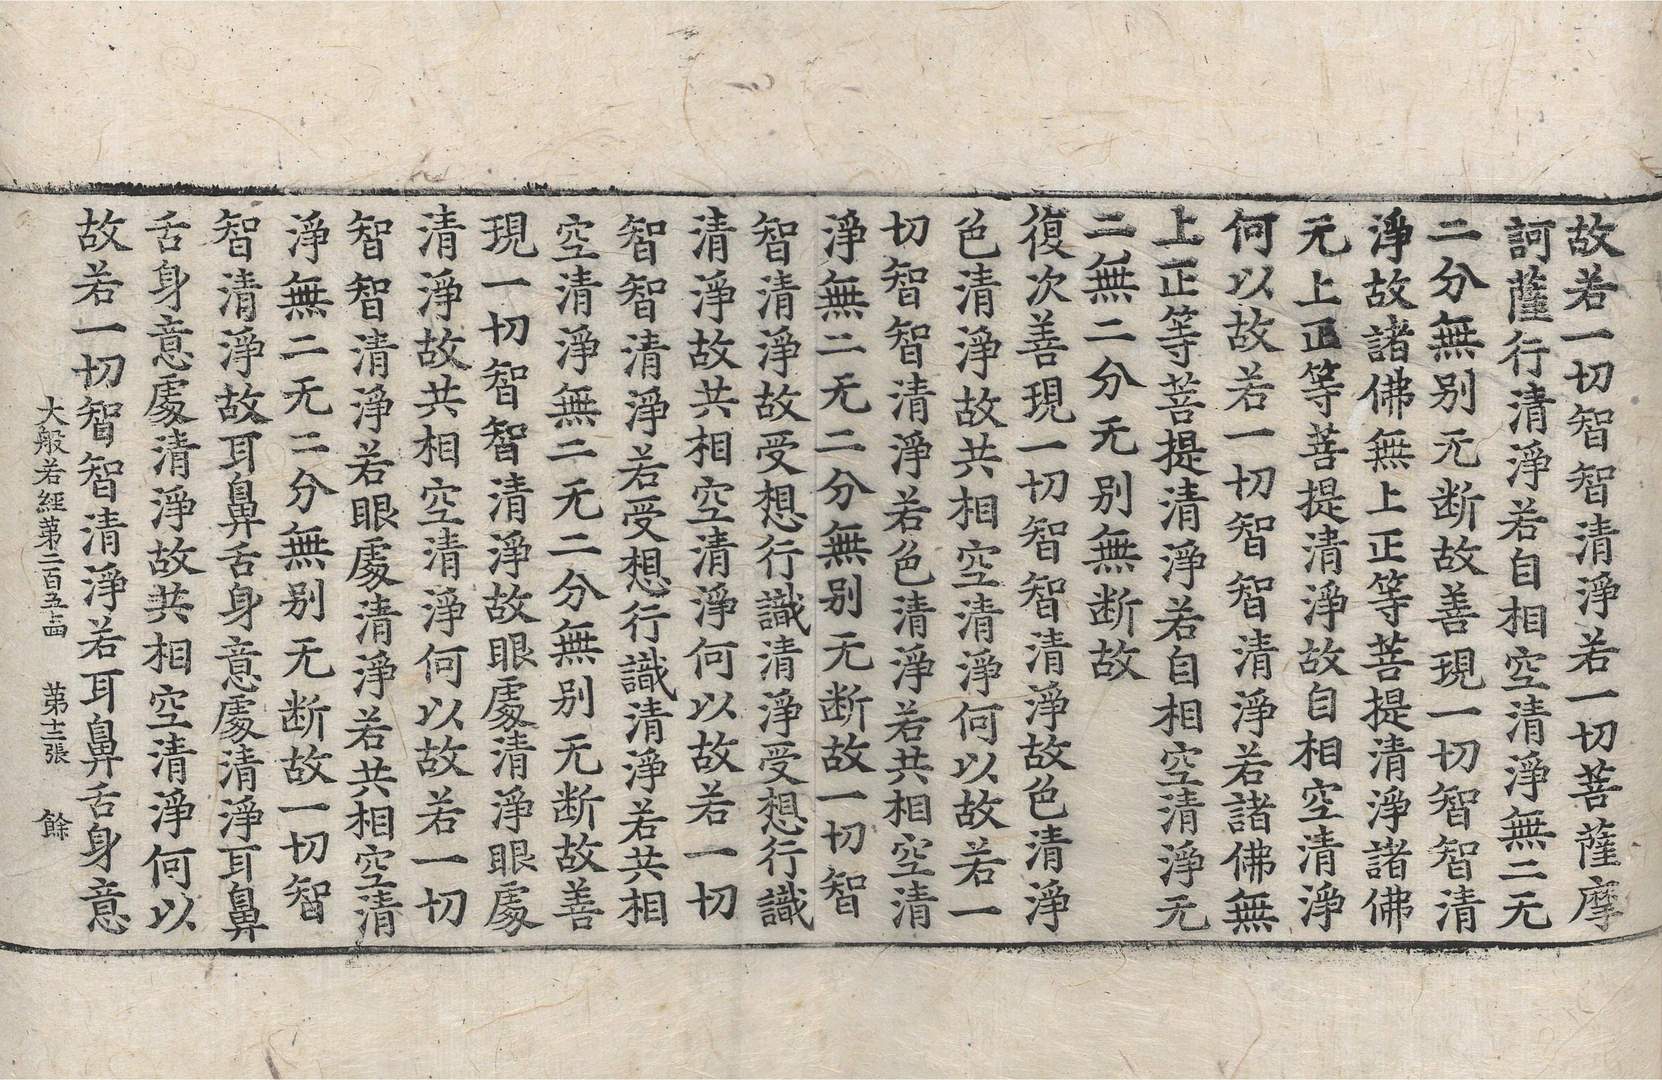 故若一切智智清淨若一切菩薩摩
訶薩行清淨若自相空清淨無二无
二分無别无断故善現一切智智清
淨故諸佛無上正等菩提清淨諸佛
无上正等菩提清淨故自相空清淨
何以故若一切智智清淨若諸佛無
上正等菩提清淨若自相空清淨无
二無二分无别無断故
復次善現一切智智清淨故色清淨
色清淨故共相空清淨何以故若一
切智智清淨若色清淨若共相空清
淨無二无二分無别无断故一切智
智清淨故受想行識清淨受想行識
清淨故共相空清淨何以故若一切
智智清淨若受想行識清淨若共相
空清淨無二无二分無别无断故善
現一切智智清淨故眼處清淨眼處
清淨故共相空清淨何以故若一切
智智清淨若眼處清淨若共相空清
淨無二无二分無别无断故一切智
智清淨故耳鼻舌身意處清淨耳鼻
舌身意處清淨故共相空清淨何以
故若一切智智清淨若耳鼻舌身意
大般若經第二百五十四 第十二張 餘